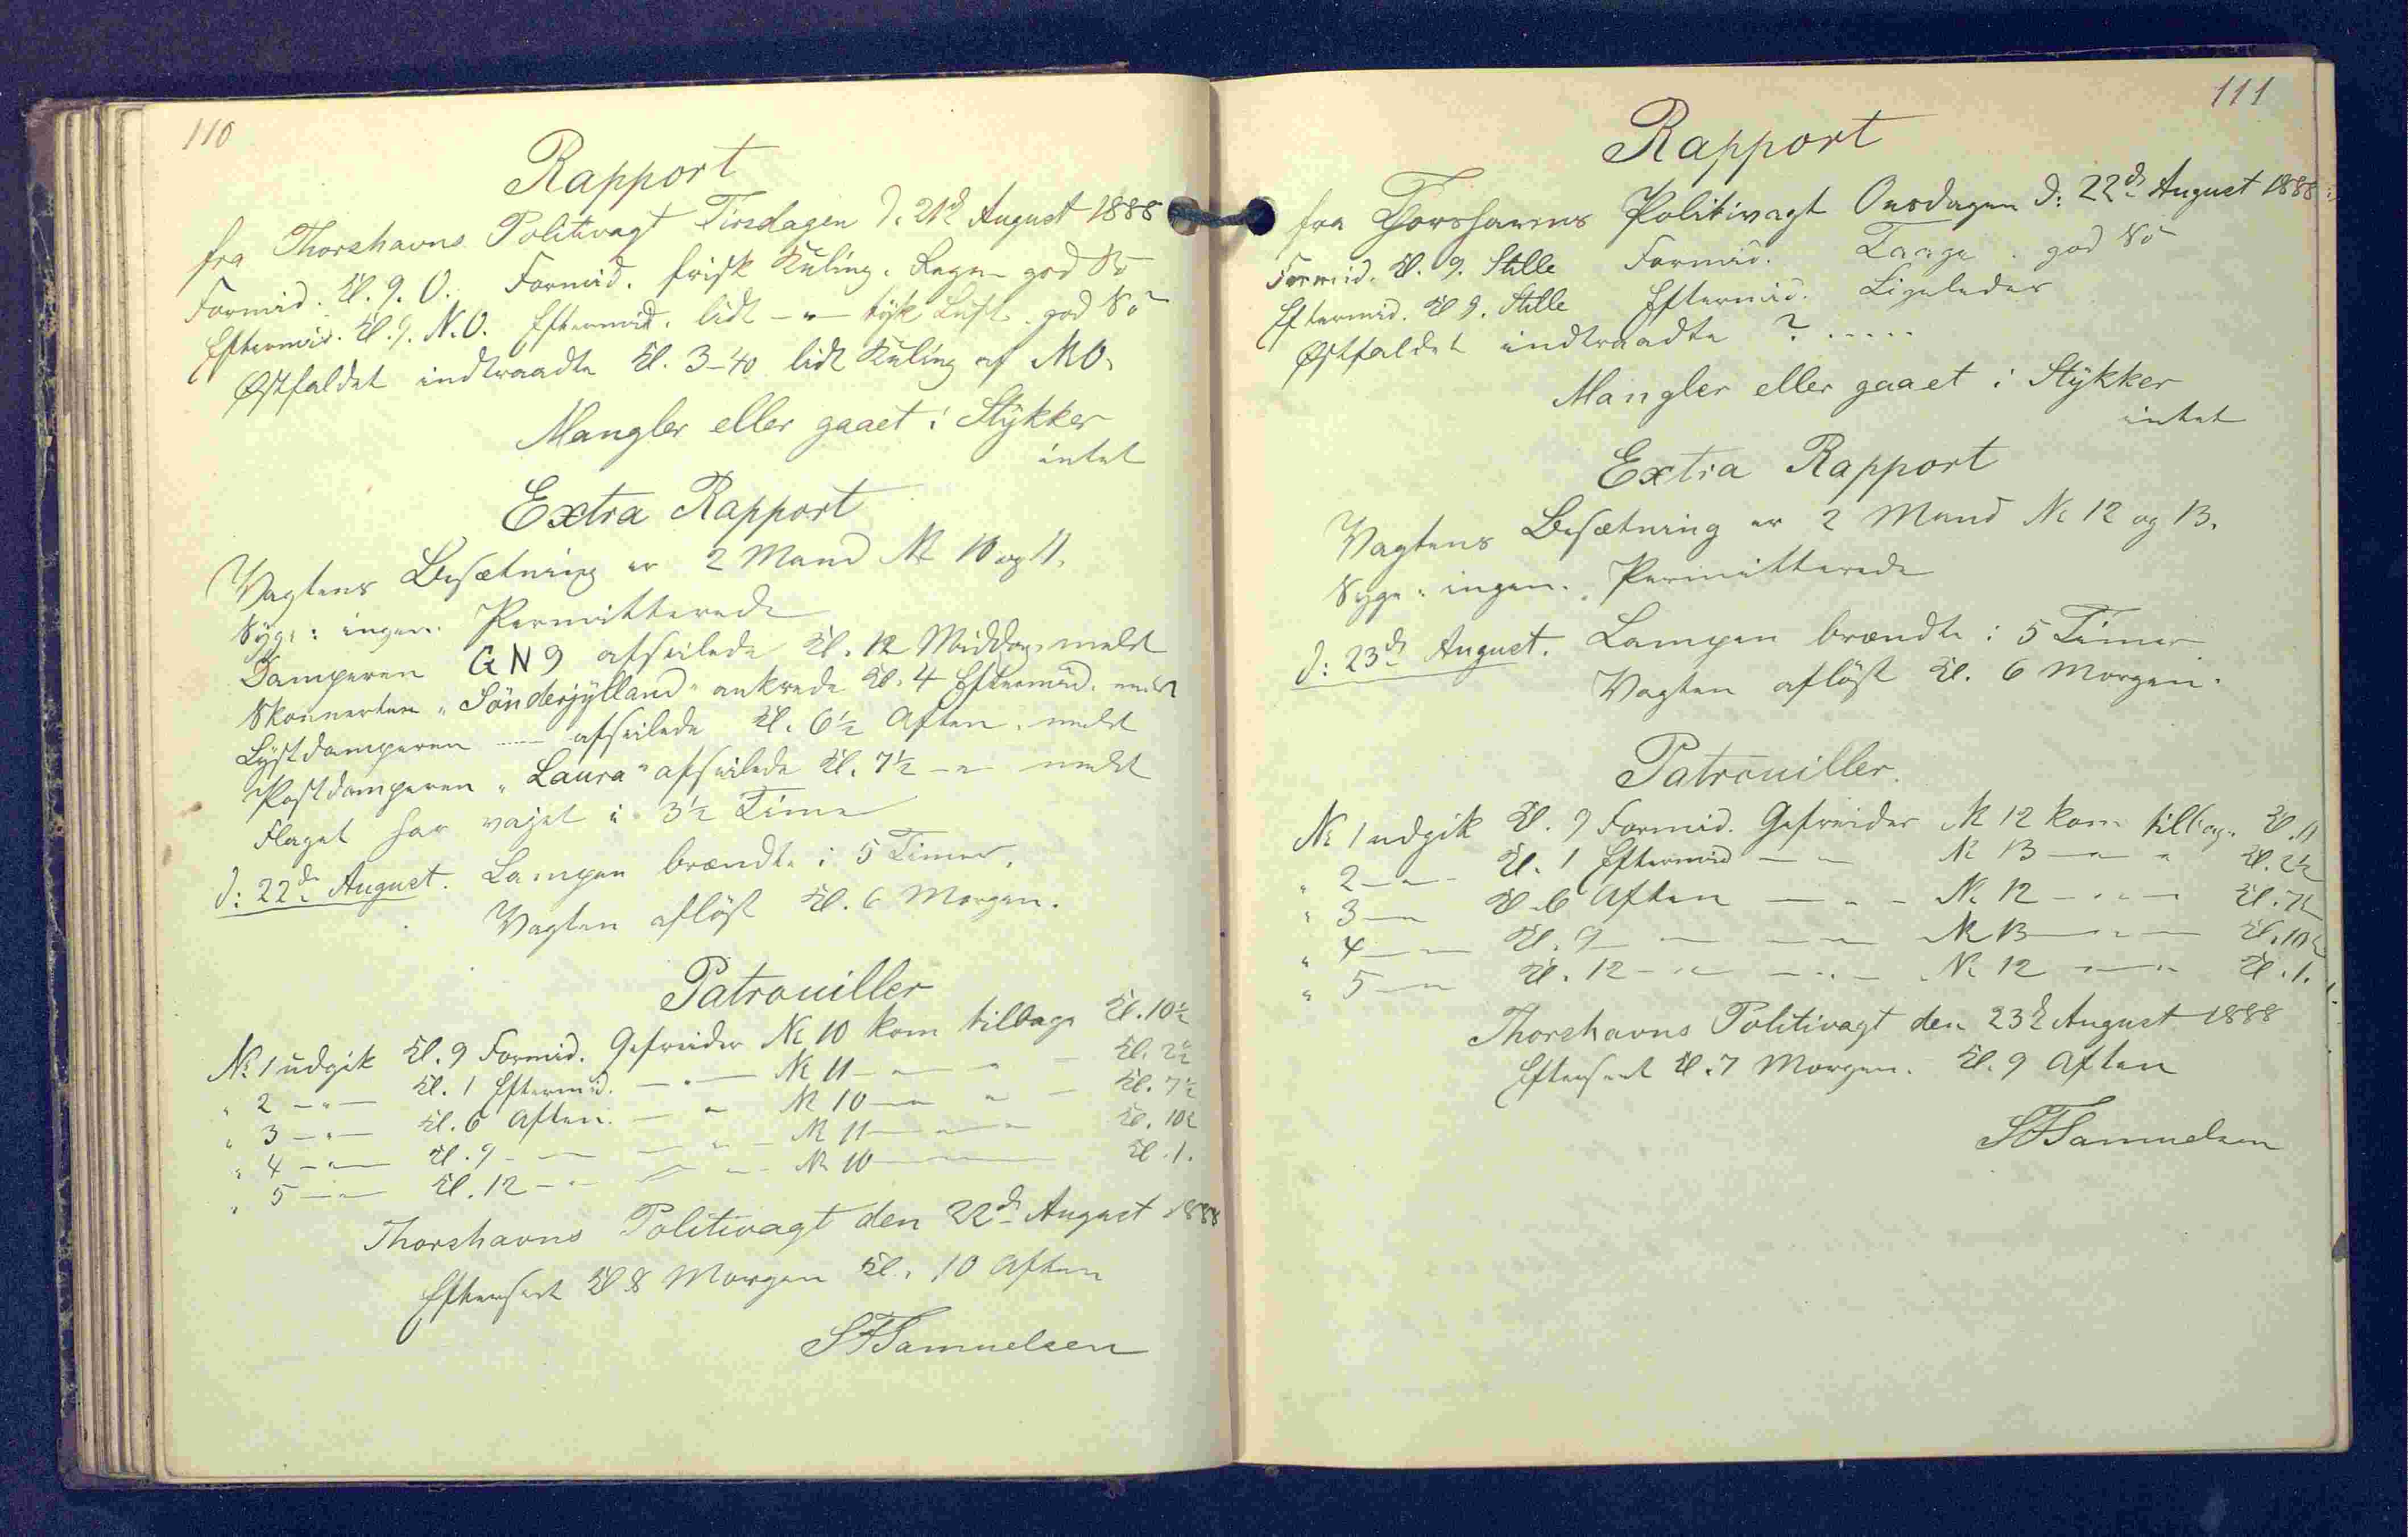 110
Rapport
fra Thorshavns Politivagt Tirsdagen d. 21d August 1888
Formid. Kl. 9. O. Formid. frisk Kuling. Regn god Sö
Eftermid. Kl. 9. N.O. Eftermid. lidt — " — tyk Luft. god Sö
Østfaldet indtraadte Kl. 3-40 lidt Kuling af NO.
Mangler eller gaaet i Stykker
intet
Extra Rapport
Vagtens Besætning er 2 Mand No 10 og 11.
Syge: ingen. Permitterede
Damperen GN9 afseilede Kl. 12 Middag. meldt
Skonnerten "Sönderjylland" ankrede Kl. 4 Eftermid. meldt
Lystdamperen ...... afseilede Kl. 6½ Aften. meldt
Postdamperen "Laura" afseilede Kl. 7½ — " — meldt
Flaget har vajet i 3½ Time
d: 22de August. Lampen brændte i 5 Timer.
Vagten aflöst Kl. 6 Morgen.
Patrouiller
No 1 udgik Kl. 9 Formid. Gefreider No 10 kom tilbage Kl. 10½
" 2 — " — Kl. 1 Eftermid. — " — No 11 — " — " — Kl. 2½
" 3 — " — Kl. 6 Aften. — " — No 10 — " — " — Kl. 7½
" 4 — " — Kl. 9 — " — — " — No 11 — " — " — Kl. 10½
" 5 — " — Kl. 12 — " — — " — No 10 — " — " — Kl. 1.
Thorshavns Politivagt den 22de August 1888
Efterseet Kl 8 Morgen Kl. 10 Aften
SFSamuelsen
111
Rapport
fra Thorshavns Politivagt Onsdagen d: 22de August 1888
Formid. Kl. 9. Stille Formid. Taage. god Sö
Eftermid. Kl 9. Stille Eftermid. Ligeledes
Østfaldet indtraadte ? .....
Mangler eller gaaet i Stykker
intet
Extra Rapport
Vagtens Besætning er 2 Mand No 12 og 13.
Syge: ingen. Permitterede
d: 23de August. Lampen brændte i 5 Timer
Vagten aflöst Kl. 6 Morgen.
Patrouiller.
No 1 udgik Kl. 9 Formid. Gefreider No 12 kom tilbage. Kl. 11
" 2 — " — Kl. 1 Eftermid — " — No 13 — " — " Kl. 2½
" 3 — " Kl. 6 Aften — " — No 12 — " — " — Kl. 7½
" 4 — " — Kl. 9 — " — — " — No 13 — " — " — Kl. 10½
" 5 — " Kl. 12 — " — — " — No 12 — " — " Kl. 1.
Thorshavns Politivagt den 23d August 1888
Efterseet Kl. 7 Morgen. Kl. 9 Aften
SFSamuelsen